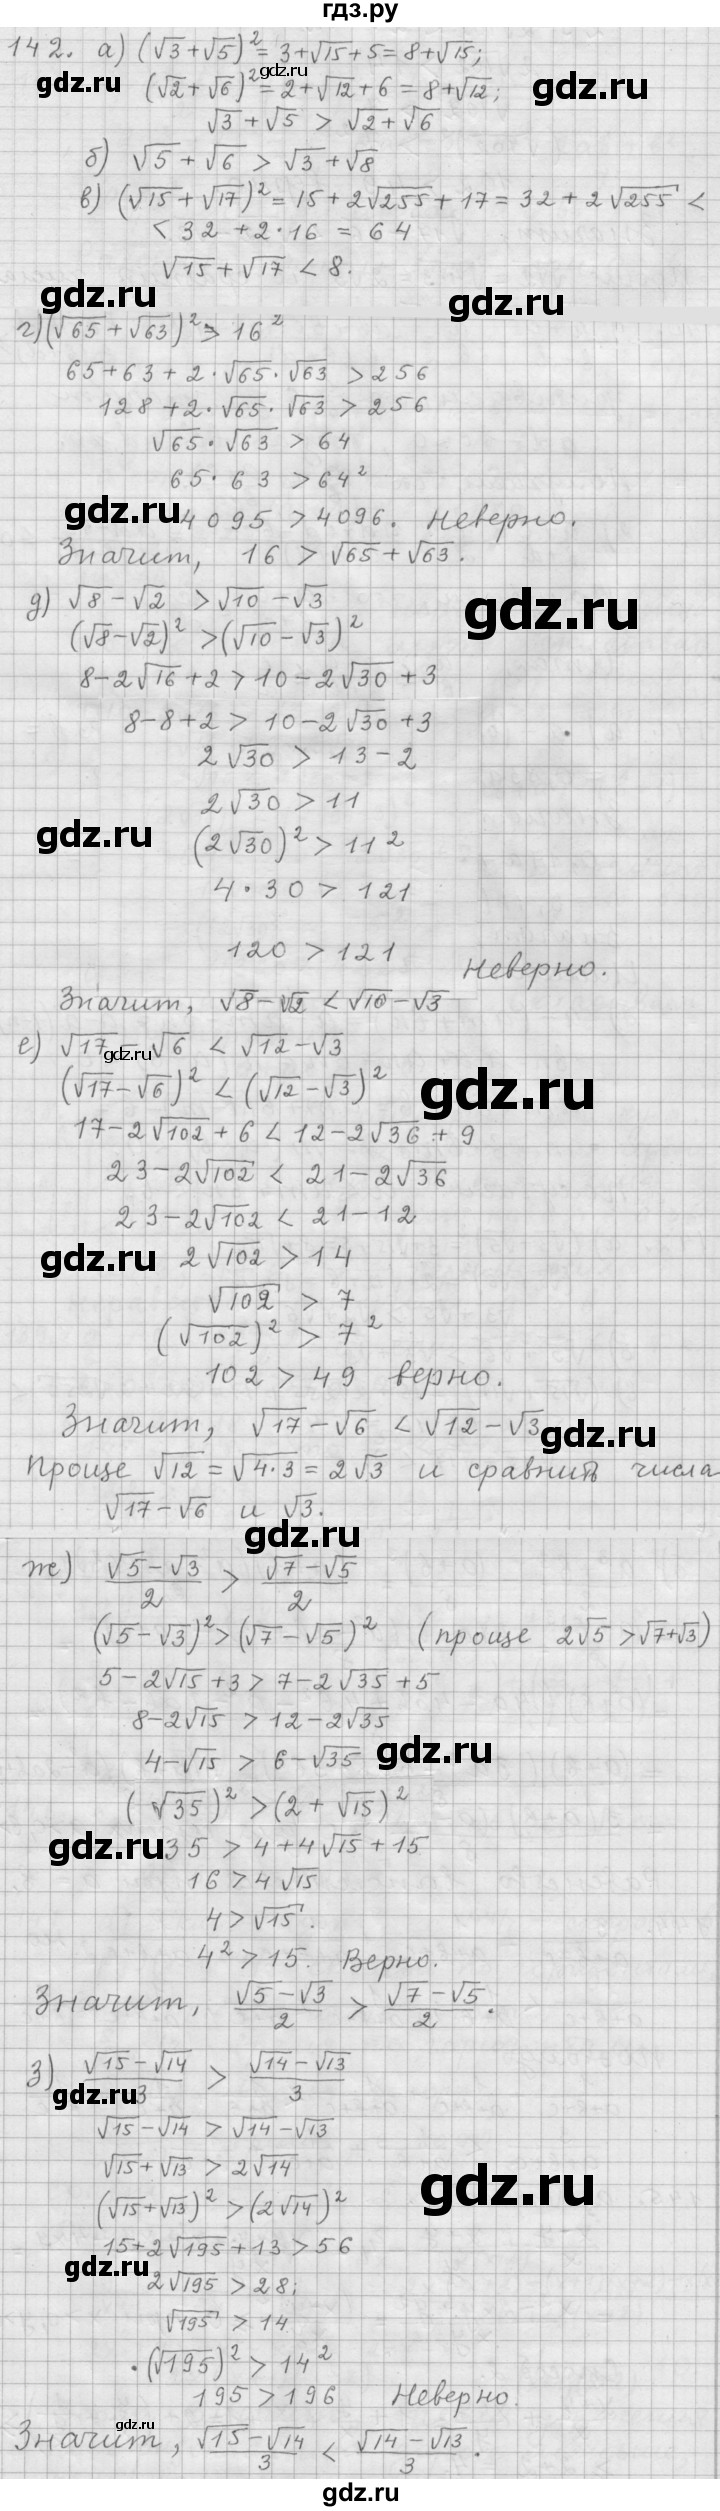 гдз.ру
142. а) (√3+√5)²=3+√15+5=8+√15;
gdz.ru
gdz.ru
(√2+√6)²=2+√12+6=8+√12;
gdz.ru
√3+√5 > √2+√6
б) √5+√6 > √3+√8
в) (√15+√17)²=15+2√255+17=32+2√255 <
< 32+2·16=64
√15+√17 < 8.
gdz.ru
gdz.ru
г) (√65+√63)² > 16²
65+63+2·√65·√63 > 256
128+2·√65·√63 > 256
√65·√63 > 64
65·63 > 64²
gdz.ru
4095 > 4096. Неверно.
Значит, 16 > √65+√63.
д) √8-√2 > √10-√3
gdz.ru
(√8-√2)² > (√10-√3)²
8-2√16+2 > 10-2√30+3
8-8+2 > 10-2√30+3
2√30 > 13-2
2√30 > 11
gdz.ru
(2√30)² > 11²
4·30 > 121
120 > 121
Неверно.
Значит, √8-√2 < √10-√3
е) √17-√6 < √12-√3
gdz.ru
(√17-√6)² < (√12-√3)²
gdz.ru
17-2√102+6 < 12-2√36+9
23-2√102 < 21-2√36
23-2√102 < 21-12
gdz.ru
2√102 > 14
√102 > 7
(√102)² > 7²
102 > 49 верно.
Значит, √17-√6 < √12-√3
gdz.ru
Проще √12=√4·3=2√3 и сравнить числа
√17-√6 и √3.
gdz.ru
ж) (√5-√3)/2 > (√7-√5)/2
(√5-√3)² > (√7-√5)² (проще 2√5 > √7+√3)
5-2√15+3 > 7-2√35+5
8-2√15 > 12-2√35
4-√15 > 6-√35
gdz.ru
(√35)² > (2+√15)²
gdz.ru
35 > 4+4√15+15
16 > 4√15
4 > √15.
4² > 15. Верно.
Значит, (√5-√3)/2 > (√7-√5)/2.
з) (√15-√14)/3 > (√14-√13)/3
gdz.ru
√15-√14 > √14-√13
√15+√13 > 2√14
gdz.ru
(√15+√13)² > (2√14)²
15+2√195+13 > 56
gdz.ru
2√195 > 28;
√195 > 14
(√195)² > 14²
195 > 196 Неверно.
gdz.ru
Значит, (√15-√14)/3 < (√14-√13)/3.
gdz.ru